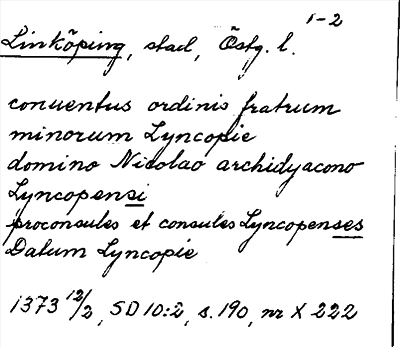 1-2
Linköping, stad, Östg. l.
conuentus ordinis fratrum
minorum Lyncopie
domino Nicolao archidyacono
Lyncopensi
proconsules et consules Lyncopenses
Datum Lyncopie
1373 12/2, SD 10:2, s. 190, nr X 222